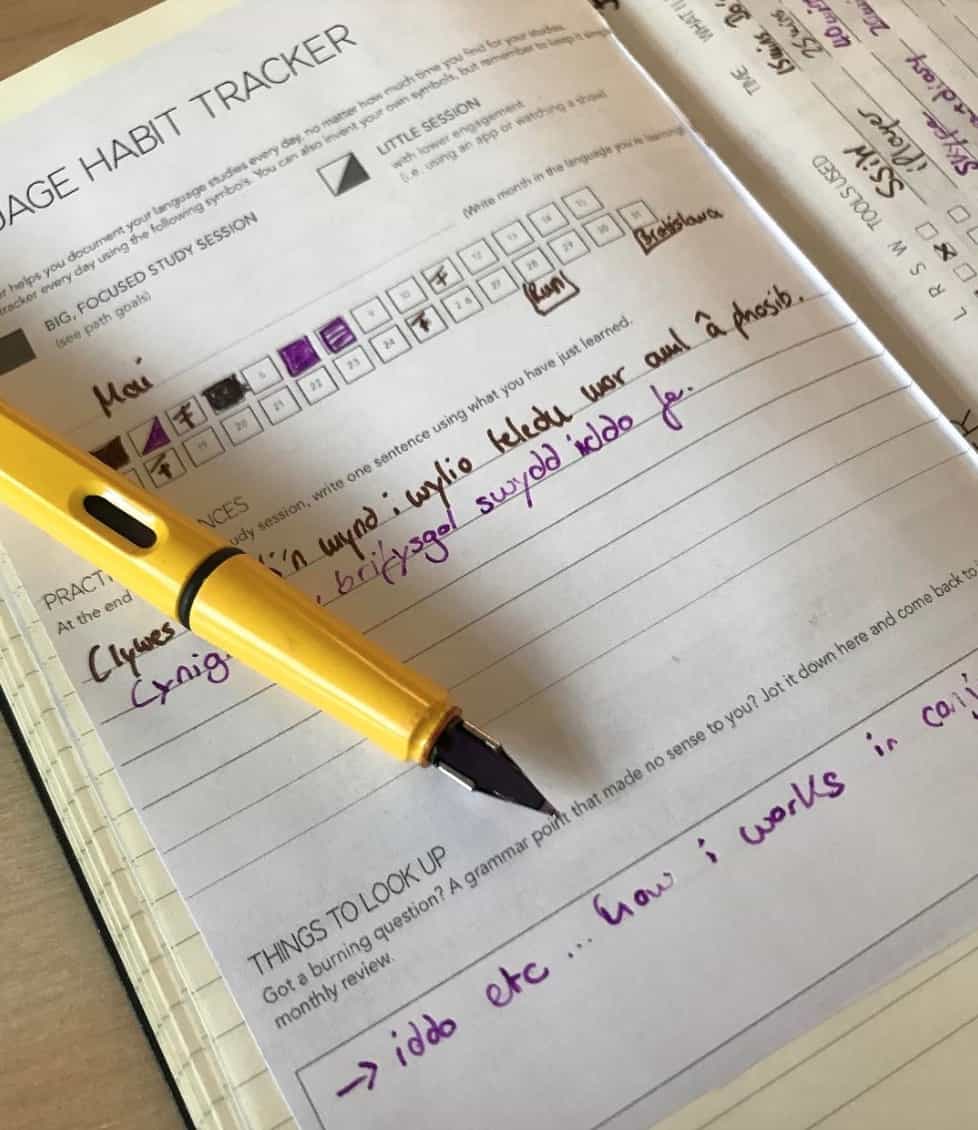 UAGE HABIT TRACKER
helps you document your language studies every day, no matter how much time you find for your studies.
tracker every day using the following symbols. You can also invent your own symbols, but remember to keep it
BIG, FOCUSED STUDY SESSION
(see path goals)
LITTLE SESSION
with lower engagement
(i.e. using an app or watching a show)
(Write month in the language you're learning)
Mai
5 9 10 12 13 14 15
19 20 21 22 23 24 26 27 28 29 30 31
Run!
Bratislava
NCES
At the end udy session, write one sentence using what you have just learned.
PRACTI
Clywes i'n wynd i wylio teledu mor aml â phosib.
Cynig brifysgol swydd iddo fe.
THINGS TO LOOK UP
Got a burning question? A grammar point that made no sense to you? Jot it down here and come back to
monthly review.
→ iddo etc... how i works in
WHAT
TIME
15 mins
25 mins
TOOLS USED
SSiW
iPlayer
Skype
diary
L R S W